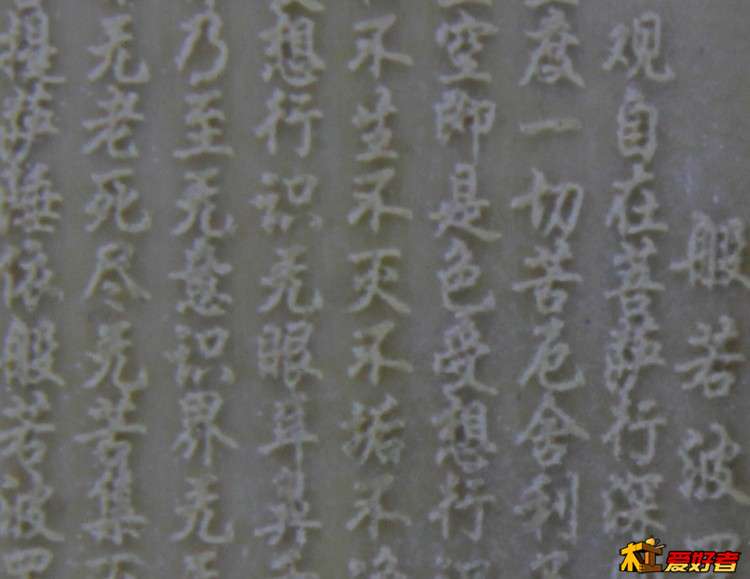 般若波
观自在菩萨行深
度一切苦厄舍利
空即是色受想行
不生不灭不垢不
想行识无眼耳鼻
乃至无意识界无
无老死尽无苦集
提萨埵依般若波
杜爱好者